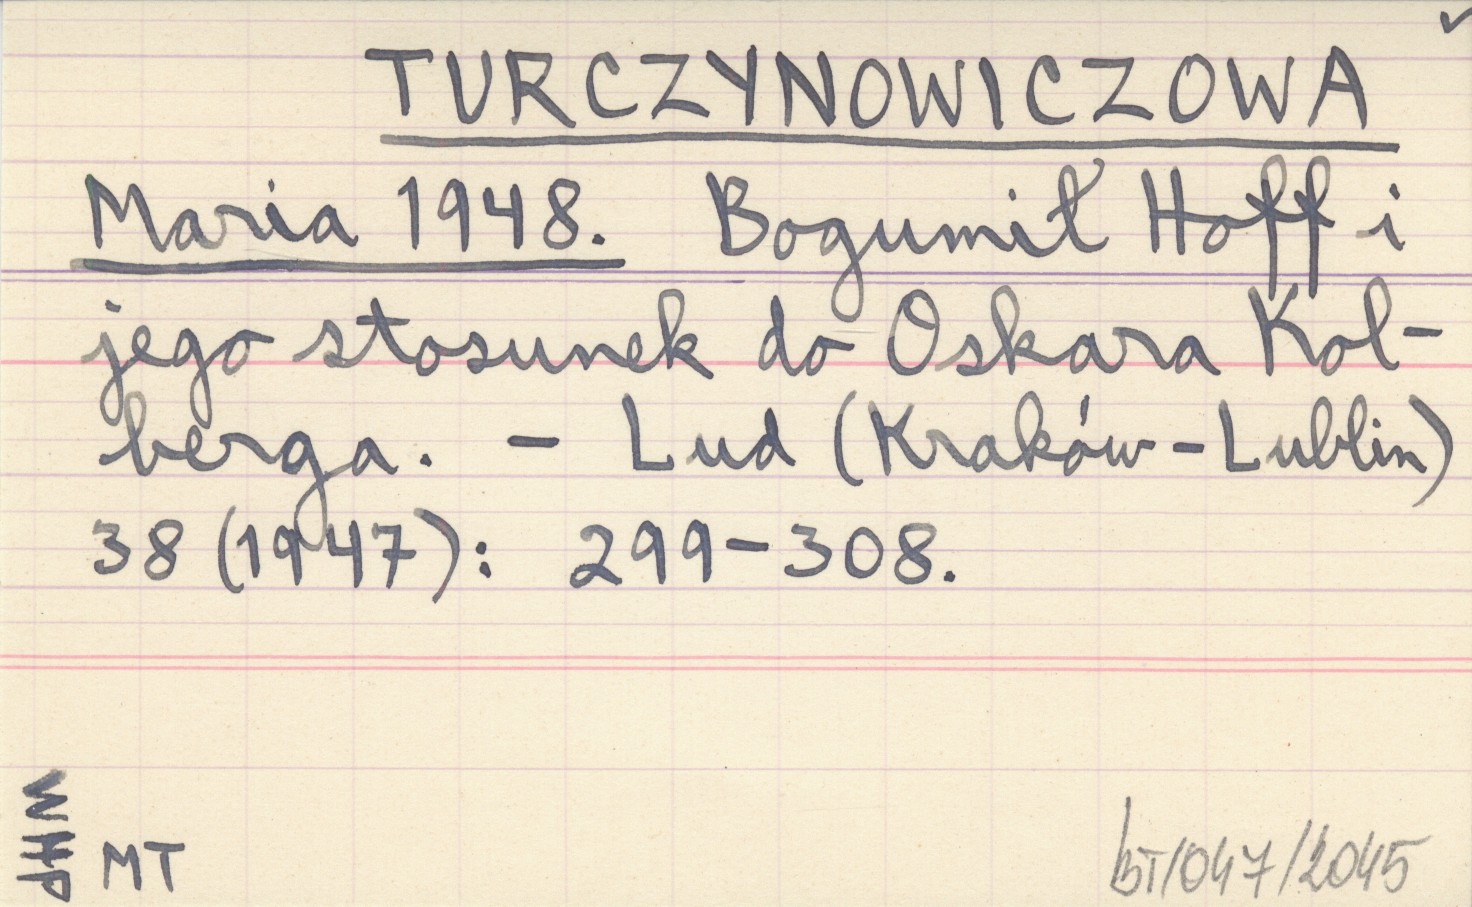 TURCZYNOWICZOWA
Maria 1948. Bogumił Hoff i
jego stosunek do Oskara Kol-
berga. - Lud (Kraków - Lublin)
38 (1947): 299-308.
WHP
MT
BT/047/2045